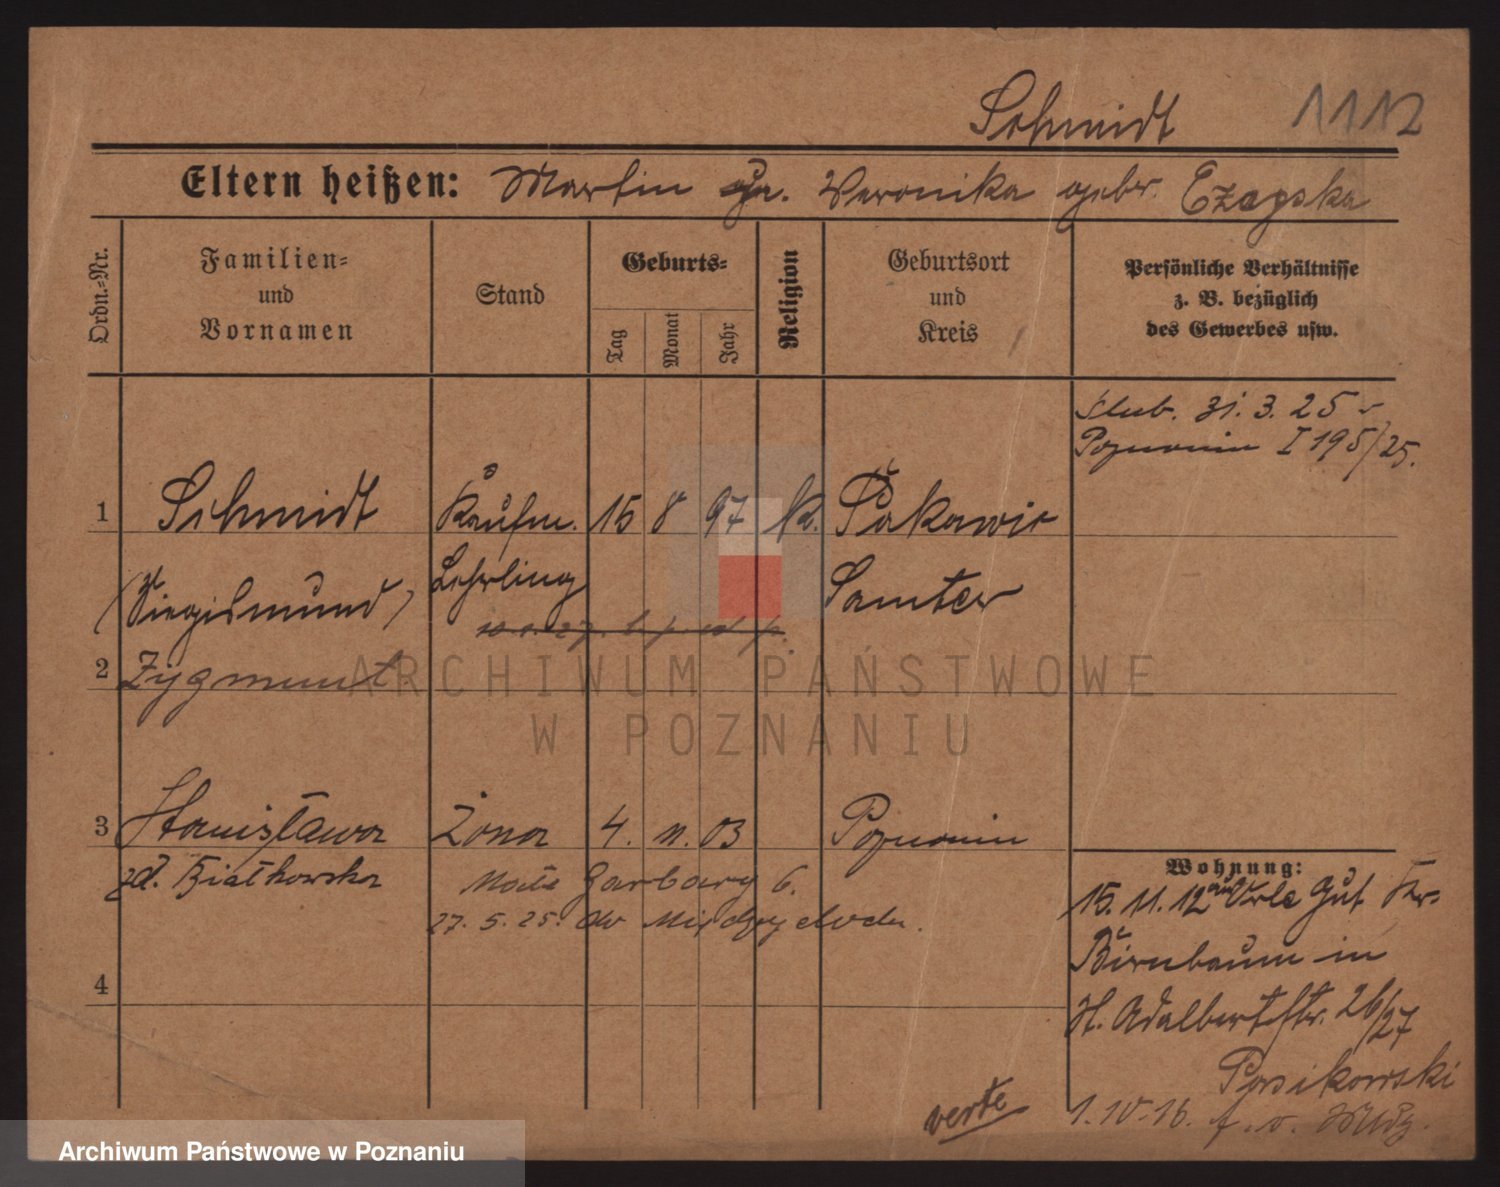 Schmidt 1112
Eltern heißen: Martin u. Veronika gebr. Czapska
Ordn.-Nr.
Familien-
und
Vornamen
Stand
Geburts-
Tag
Monat
Jahr
Religion
Geburtsort
und
Kreis
Persönliche Verhältnisse
z. B. bezüglich
des Gewerbes usw.
ślub. 31. 3. 25
Poznaniu I 195/25.
1 Schmidt Kaufm. 15 8 97 k. Pakawie
(Siegismund) Lehrling Samter
2 Zygmunt
3 Stanisława żona 4. 11. 03 Poznaniu
zd. Białkowska Małe Garbary 6.
27. 5. 25. do Międzychodu.
4
Wohnung:
15. 11. 12 Gut
Birnbaum in
H. Adalbertstr. 26/27
1. 10. 16.
verte
ARCHIWUM PAŃSTWOWE
W POZNANIU
Archiwum Państwowe w Poznaniu